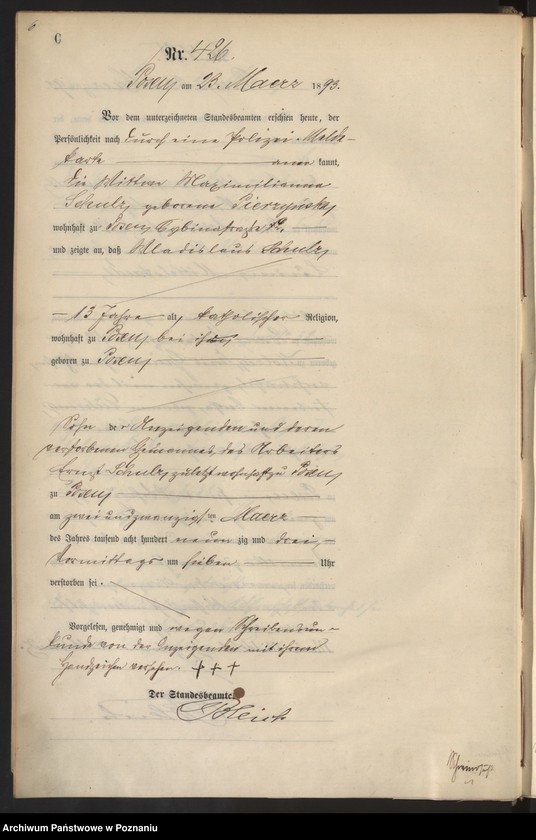 6
C
Nr. 426
Posen am 23. Maerz 1893.
Vor dem unterzeichneten Standesbeamten erschien heute, der
Persönlichkeit nach durch eine Polizei-Melde-
karte anerkannt,
die Wittwe Maximilianna
Schulz, geborene
wohnhaft zu Posen, Cybinastraße
und zeigte an, daß Wladislaus Schulz,
13 Jahre alt, katholischer Religion,
wohnhaft zu Posen, bei ihr
geboren zu Posen,
Sohn der Anzeigenden und deren
verstorbenen Ehemannes, des Arbeiters
Ernst Schulz, zuletzt wohnhaft zu Posen,
zu Posen,
am zweiundzwanzigsten Maerz
des Jahres tausend acht hundert neunzig und drei,
Vormittags um sieben Uhr
verstorben sei.
Vorgelesen, genehmigt und wegen Schreibensun-
kunde von der Anzeigenden mit ihrem
Handzeichen versehen. +++
Der Standesbeamte.
Archiwum Państwowe w Poznaniu